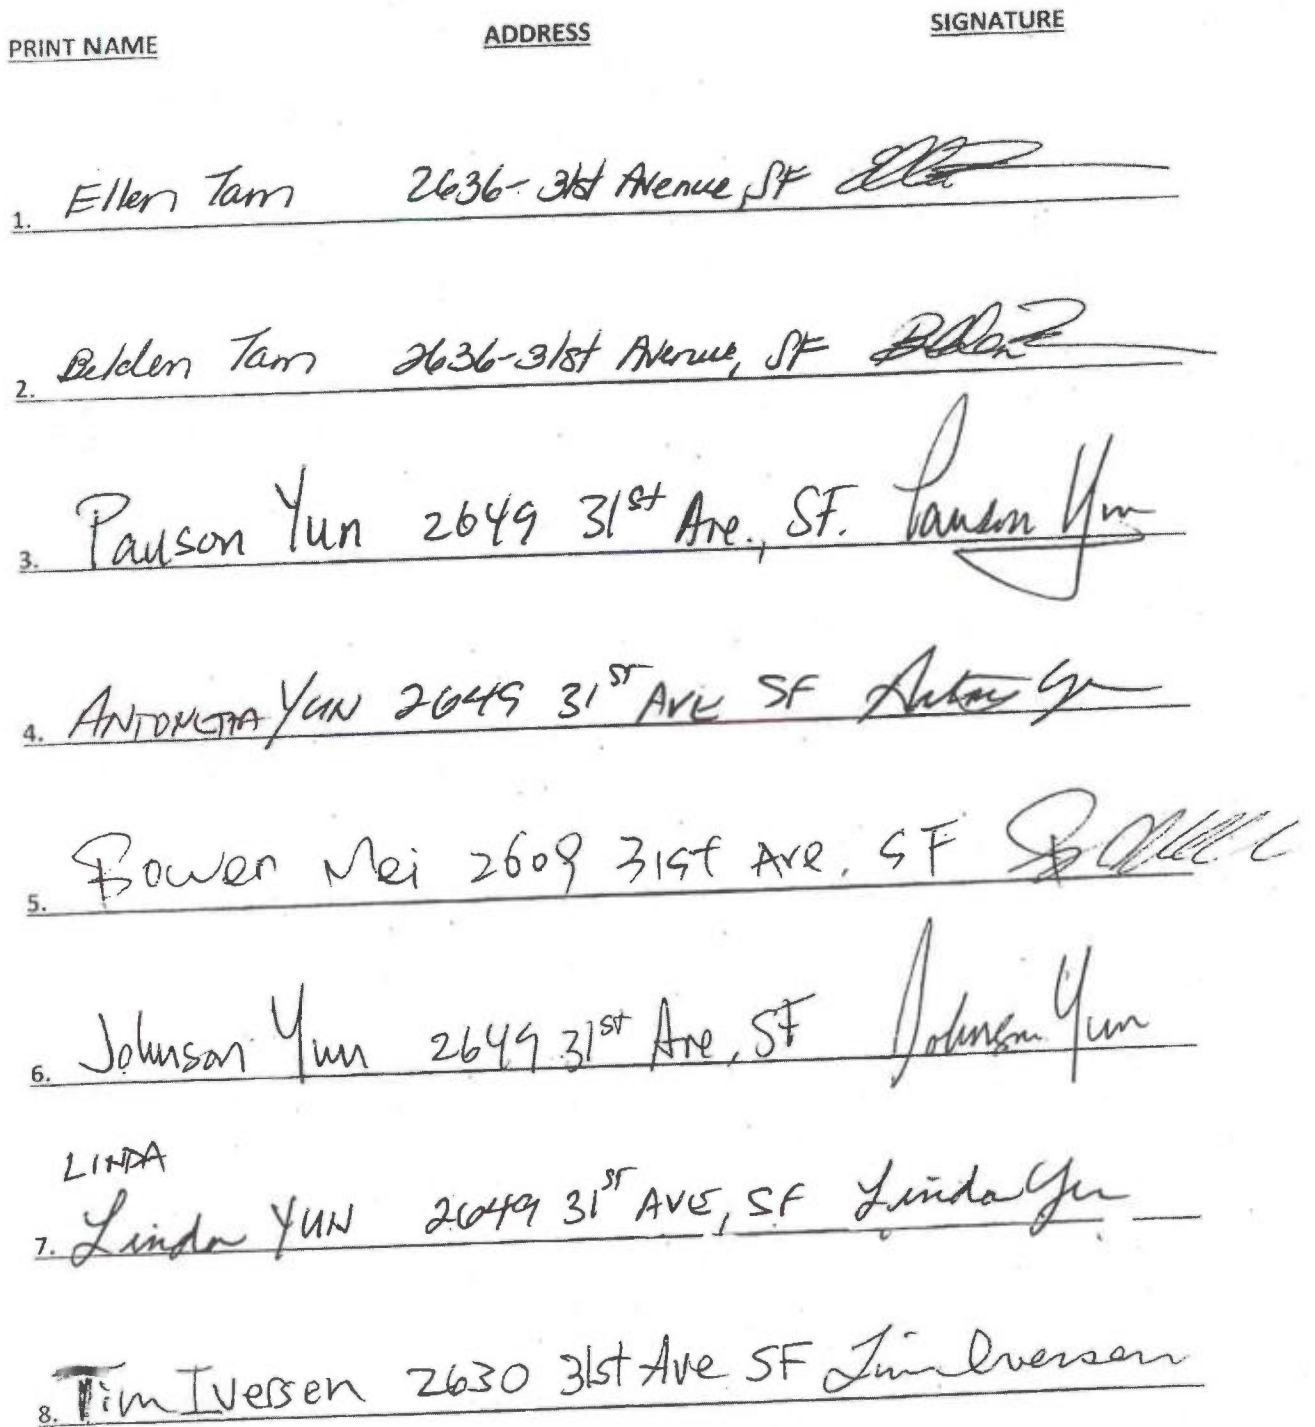 PRINT NAME ADDRESS SIGNATURE
1. Ellen Tam 2636-31st Avenue, SF
2. Belden Tam 2636-31st Avenue, SF
3. Pauson Yun 2649 31st Ave., SF. Pauson Yun
4. ANTONETTA YUN 2649 31ST AVE SF
5. Bower Mei 2609 31st Ave. SF
6. Johnson Yun 2649 31st Ave, SF Johnson Yun
LINDA
7. Linda YUN 2649 31ST AVE, SF Linda Yun
8. Tim Iversen 2630 31st Ave SF Tim Iversen